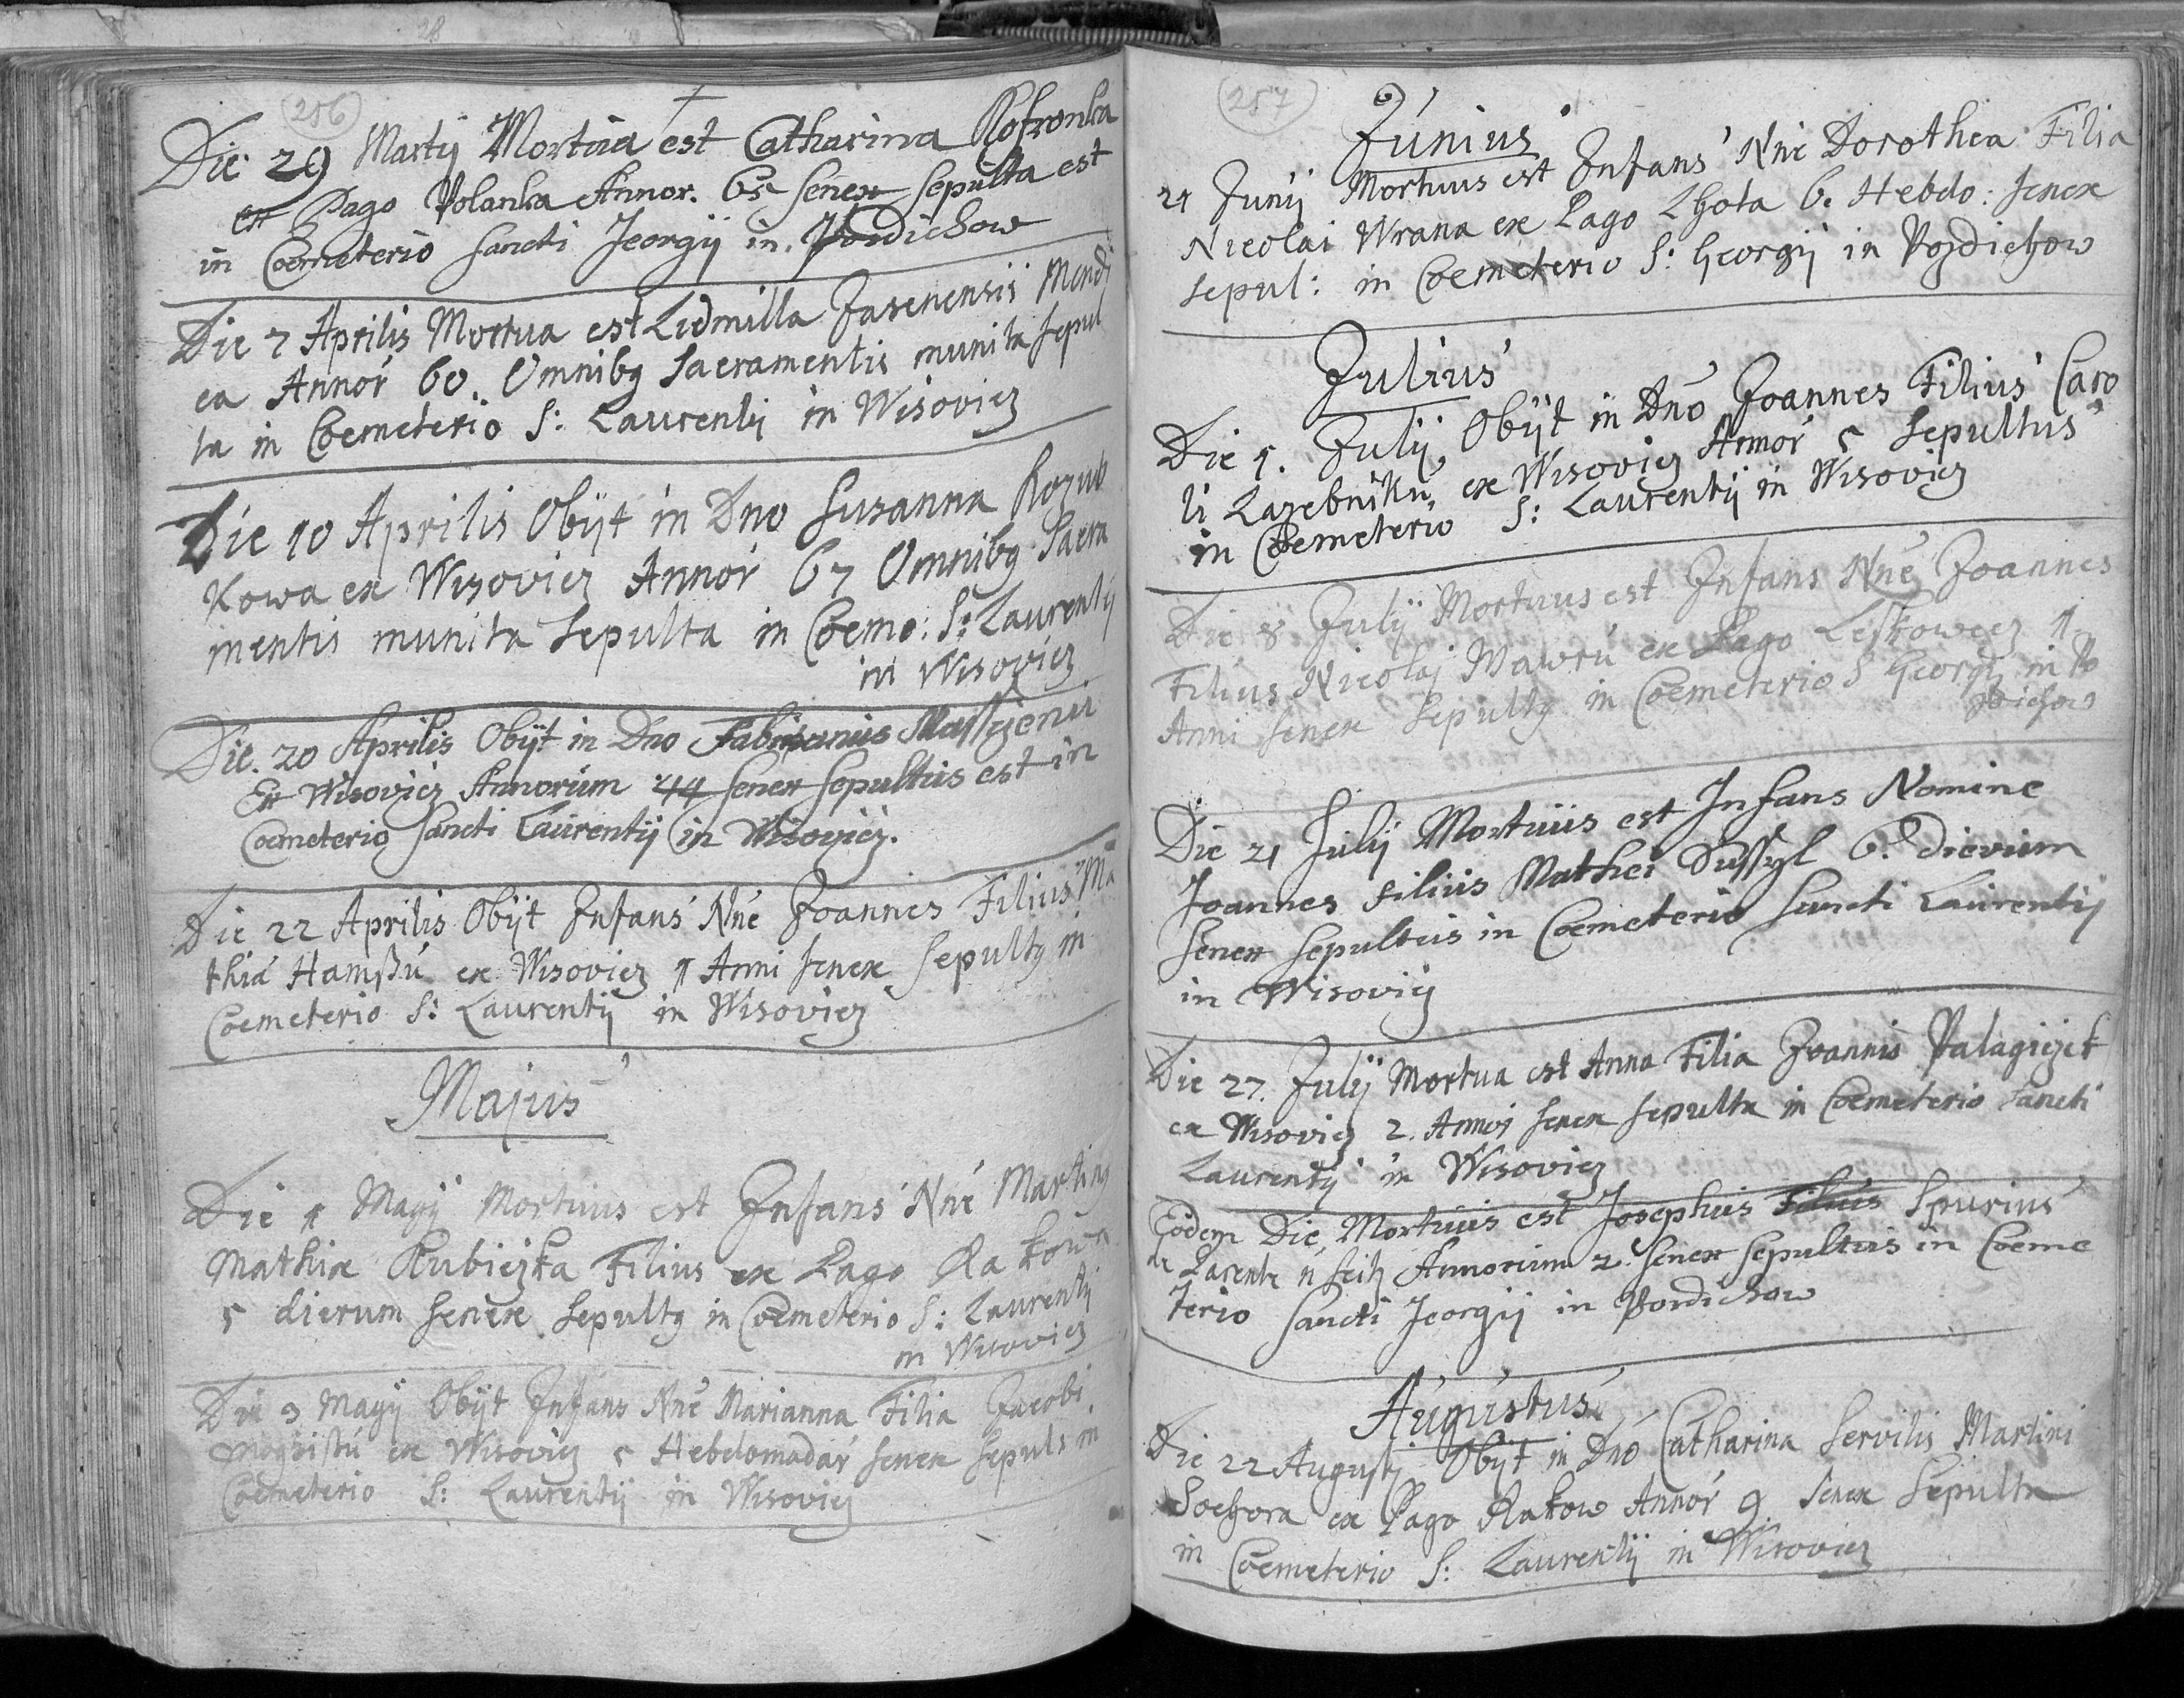 256
Die 29 Martij Mortua est Catharina Kotronka
ex Pago Polanka Annor. 65 senex sepulta est
in Coemeterio sancti Jeorgij in Pozdichow
Die 7 Aprilis Mortua est Lidmilla Jasenensis Mendi
ca Annor 60. Omnibg Sacramentis munita sepul
ta in Coemeterio S: Laurentij in Wisovicz
Die 10 Aprilis Obijt in Dno Susanna Rozub
kowa ex Wisovicz Annor 67 Omnibg Sacra
mentis munita Sepulta in Coeme: S: Laurentij
in Wisovicz
Die. 20 Aprilis Obijt in Dno
Ex Wisovicz Annorum 44 senex Sepultus est in
Coemeterio sancti Laurentij in Wisovicz.
Die 22 Aprilis Obijt Infans Nne Joannes Filius Ma
thia Hamßu ex Wisovicz 1 Anni senex Sepultg in
Coemeterio S: Laurentij in Wisovicz
Majus
Die 1 Magij Mortuus est Infans Nne Marting
Mathiæ Kubiczka Filius ex Pago Rakowa
5 dierum senex Sepultg in Coemeterio S: Laurentij
in Wisovicz
Die 3 Magij Obijt Infans Nne Marianna Filia Jacobi
ex Wisovicz 5 Hebdomadar senex Sepuls in
Coemeterio S: Laurentij in Wisovicz
257
Junius
21 Junij Mortuus est Infans Nne Dorothea Filia
Nicolai Wrana ex Pago Lhota 6. Hebdo: senex
sepul: in Coemeterio S: Georgij in Pozdiechow
Julius
Die 1. Julij Obijt in Dno Joannes Filius Caro
li Lazebniku ex Wisovicz Annor 5 Sepultus
in Coemeterio S: Laurentij in Wisovicz
Die 8 Julij Mortuus est Infans Nne Joannes
Filius Nicolaj Wawru ex Pago Leskowecz 1
Anni senex Sepultg in Coemeterio S Georgij in Po
zdichow
Die 21 Julij Mortuus est Infans Nomine
Joannes Filius Mathei Dussyl 6. dierum
Senex Sepultus in Coemeterio Sancti Laurentij
in Wisovicz
Die 27. Julij Mortua est Anna Filia Joannis Palagiczek
ex Wisovicz 2. Annor senex sepulta in Coemeterio Sancti
Laurentij in Wisovicz
Eodem Die Mortuus est Josephus Filius Spurius
Annorum 2. Senex Sepultus in Coeme
terio Sancti Jeorgij in Pozdichow
Augustus
Die 22 Augusti Obijt in Dno Catharina Servilis Martini
Sochora ex Pago Rakow Annor 9 Senex Sepulta
in Coemeterio S: Laurentij in Wisovicz